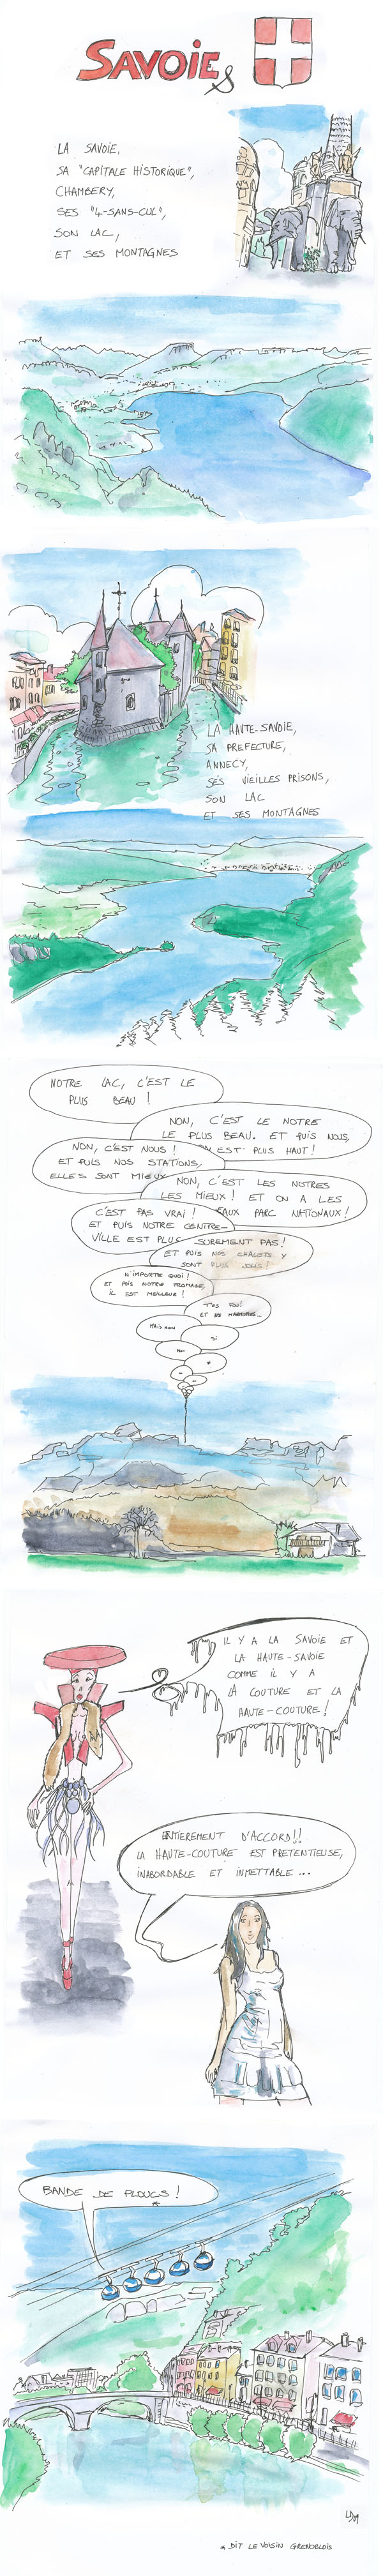 SAVOIES
LA SAVOIE,
SA "CAPITALE HISTORIQUE",
CHAMBERY,
SES "4-SANS-CUL",
SON LAC,
ET SES MONTAGNES
LA HAUTE-SAVOIE,
SA PREFECTURE,
ANNECY,
SES VIEILLES PRISONS,
SON LAC
ET SES MONTAGNES
NOTRE LAC, C'EST LE
PLUS BEAU !
NON, C'EST LE NOTRE
LE PLUS BEAU. ET PUIS NOUS,
EST PLUS HAUT !
NON, C'EST NOUS !
ET PUIS NOS STATIONS,
ELLES SONT MIEUX
NON, C'EST LES NOTRES
LES MIEUX ! ET ON A LES
PARC NATIONAUX !
C'EST PAS VRAI !
ET PUIS NOTRE CENTRE-
VILLE EST PLUS
SUREMENT PAS !
ET PUIS NOS CHALETS Y
SONT PLUS
N'IMPORTE QUOI !
ET PUIS NOTRE FROMAGE,
IL EST MEILLEUR !
T'ES FOU !
ET LES
MAIS NON
SI
NON
SI
IL Y A LA SAVOIE ET
LA HAUTE-SAVOIE
COMME IL Y A
LA COUTURE ET LA
HAUTE-COUTURE !
ENTIEREMENT D'ACCORD !!
LA HAUTE-COUTURE EST PRETENTIEUSE,
INABORDABLE ET IMMETTABLE ...
BANDE DE PLOUCS ! *
* DIT LE VOISIN GRENOBLOIS